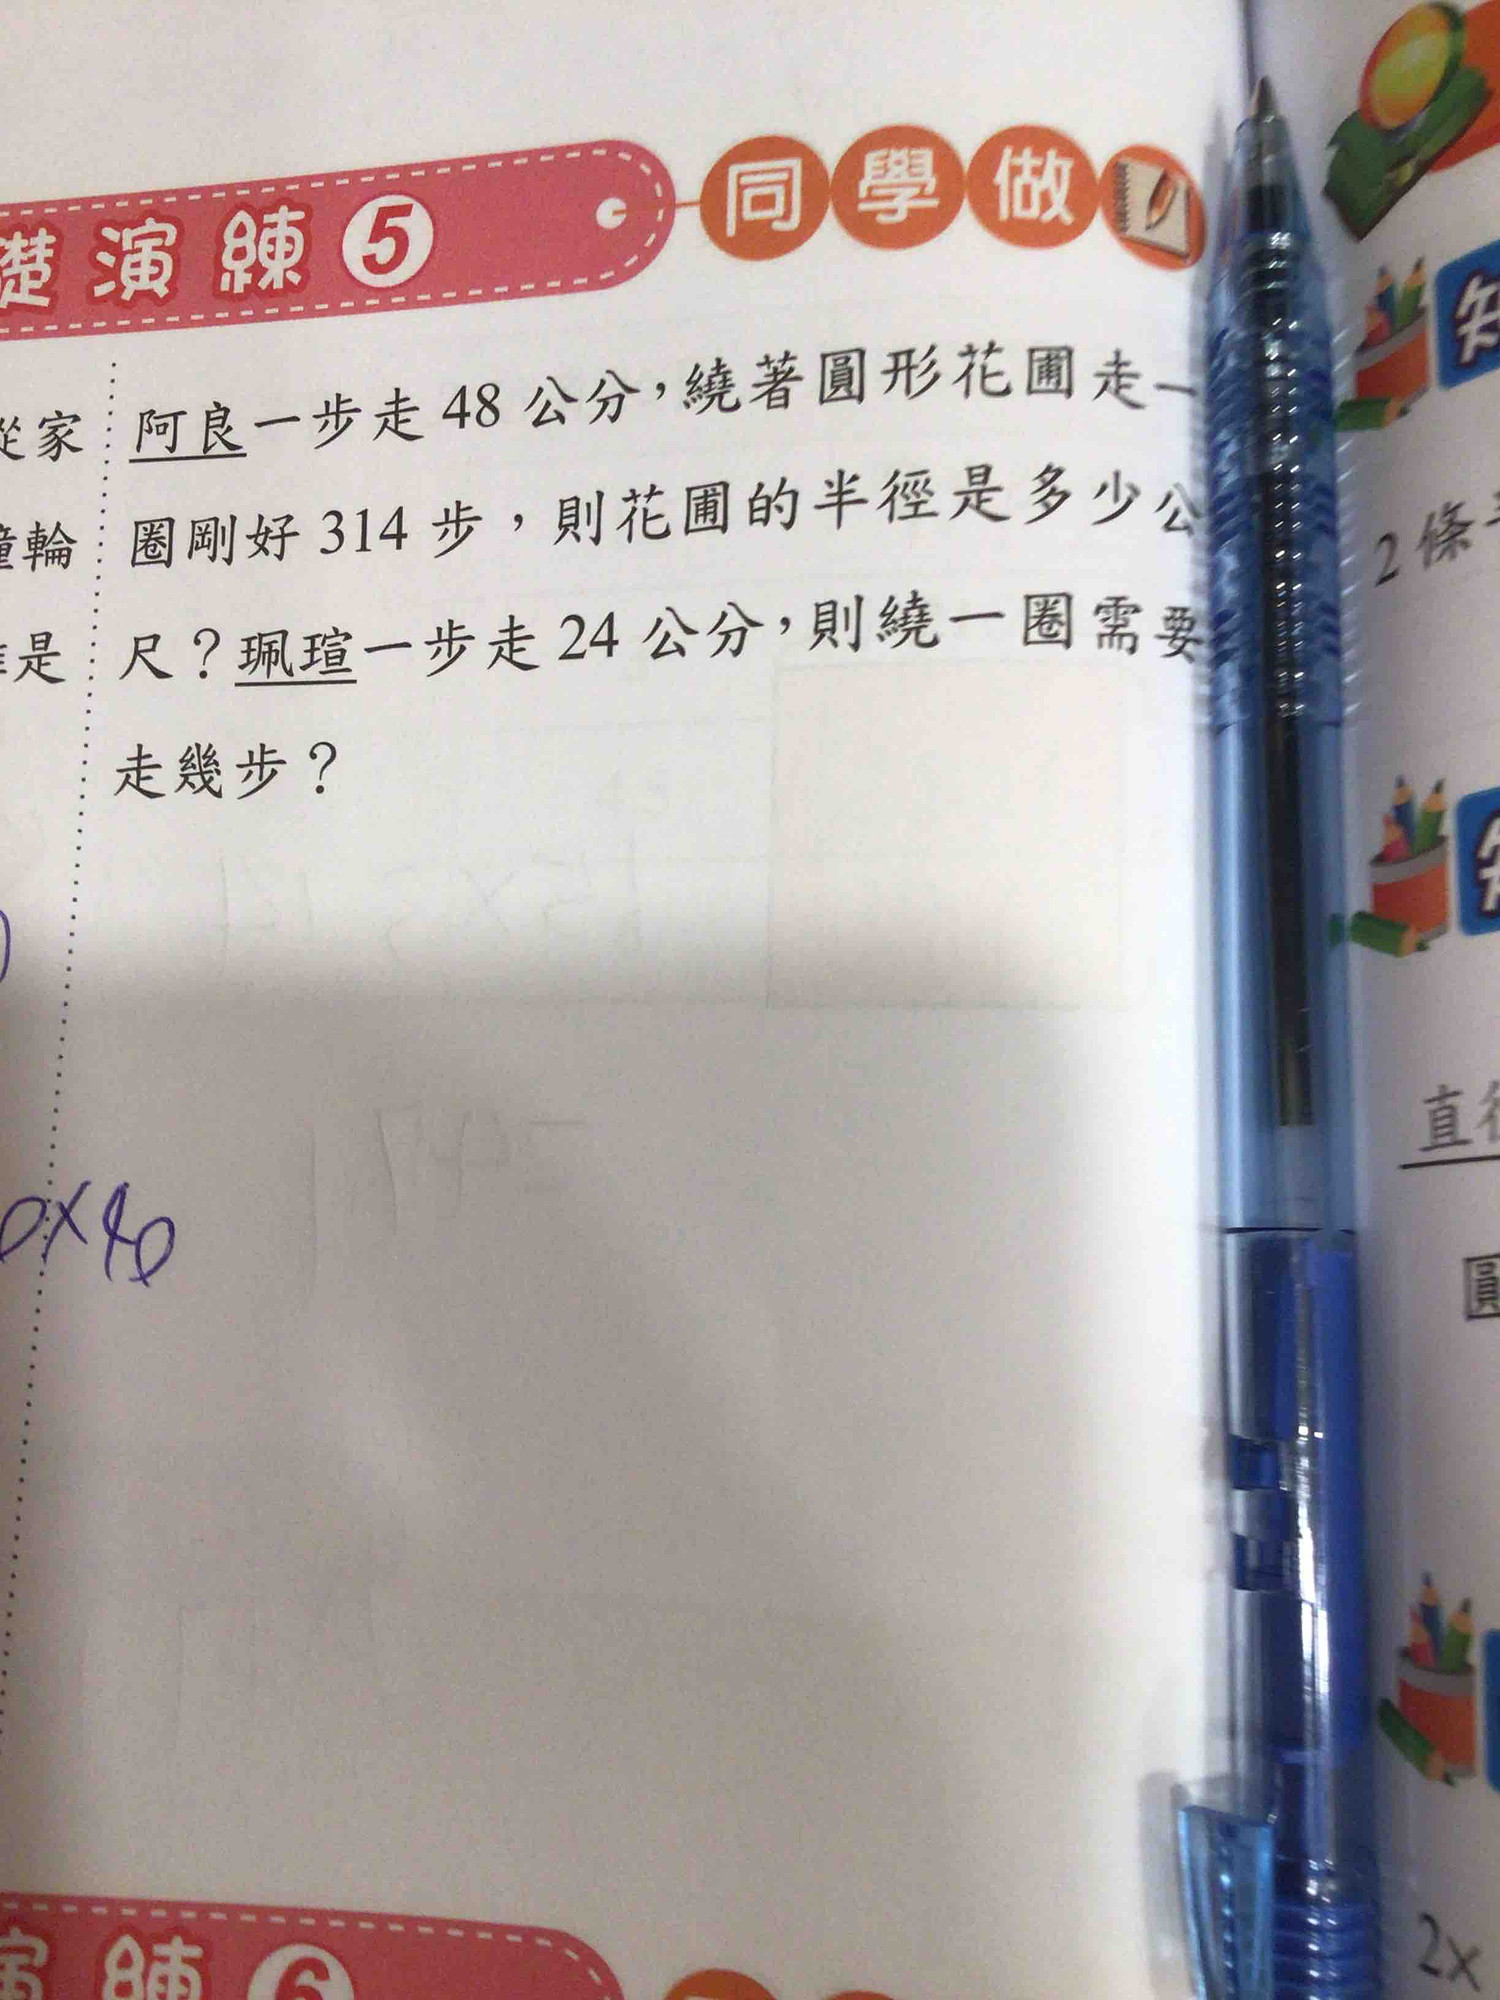 礎演練5 同學做
從家
阿良一步走48公分,繞著圓形花圃走一
輪
圈剛好314步,則花圃的半徑是多少公
是
尺?珮瑄一步走24公分,則繞一圈需要
走幾步?
知
2條
直徑
圓
2x
演練6